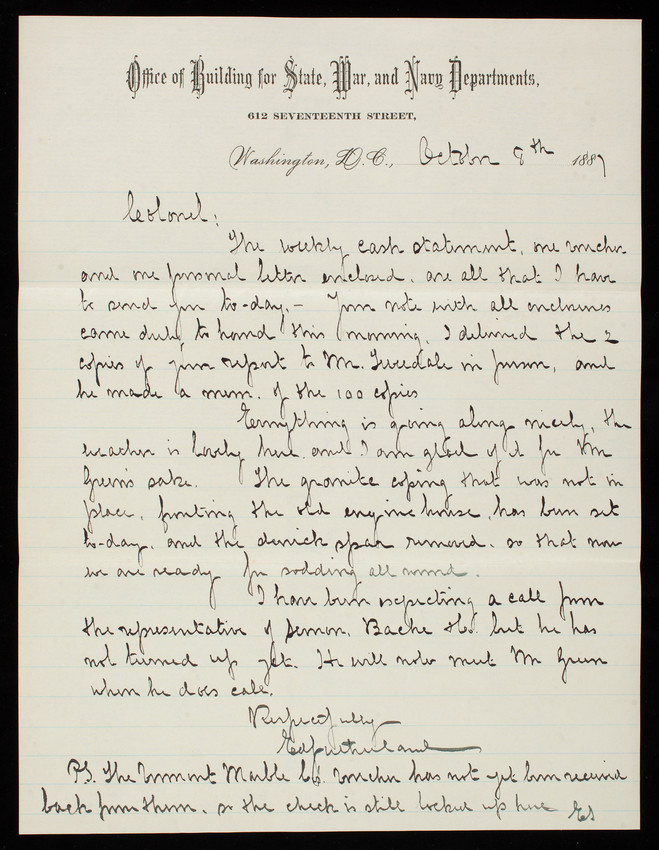 Office of Building for State, War, and Navy Departments,
612 SEVENTEENTH STREET,
Washington, D.C., October 8th 1887
Colonel:
The weekly cash statement, one voucher
and one personal letter enclosed, are all that I have
to send you to-day. - Your note with all enclosures
came duly to hand this morning. I delivered the 2
copies of your report to Mr. Tweedale in person, and
he made a mem. of the 100 copies
Everything is going along nicely, the
weather is lovely here and I am glad of it for Mr
Green's sake. The granite coping that was not in
place, fronting the old engine house, has been set
to-day, and the derrick spar removed, so that now
we are ready for sodding all round.
I have been expecting a call from
the representative of Semon, Bache & Co. but he has
not turned up yet. He will now meet Mr Green
when he does call.
Respectfully
Ed Sutherland
PS. The Vermont Marble Co. voucher has not yet been received
back from them, so the check is still locked up here ES